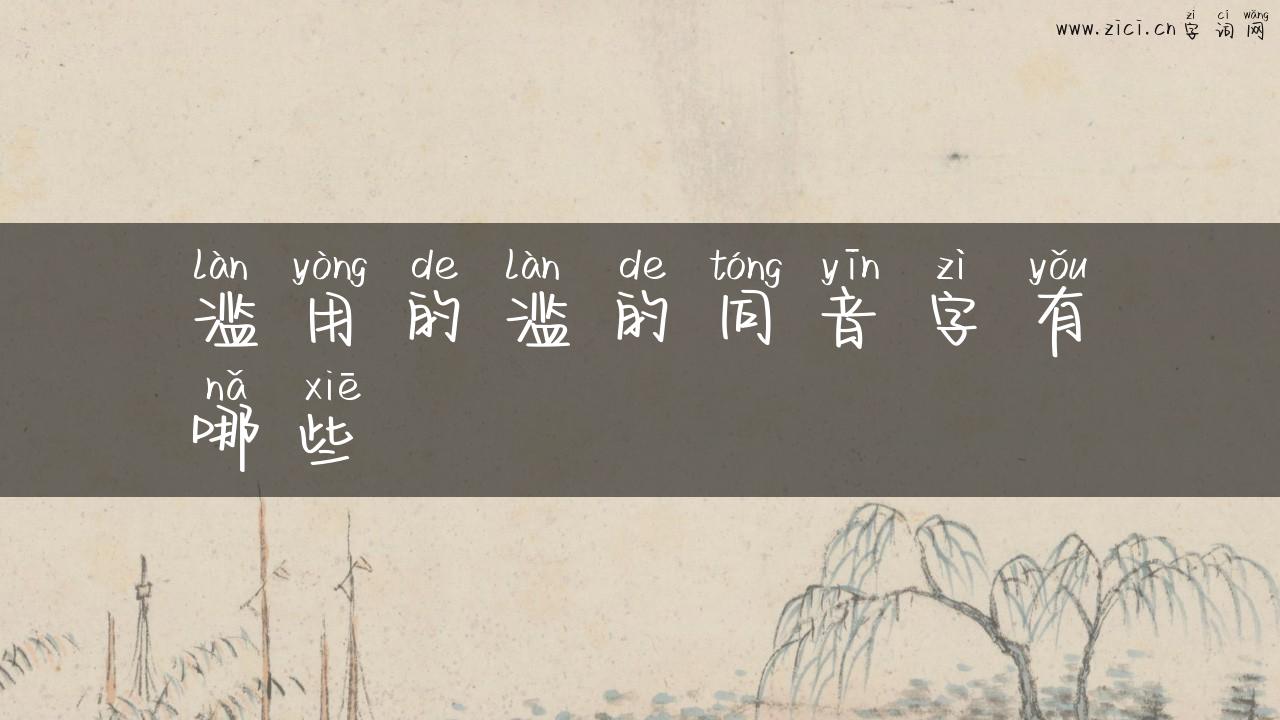 zì cí wǎng
www.zici.cn 字词网
làn yòng de làn de tóng yīn zì yǒu
滥用的滥的同音字有
nǎ xiē
哪些